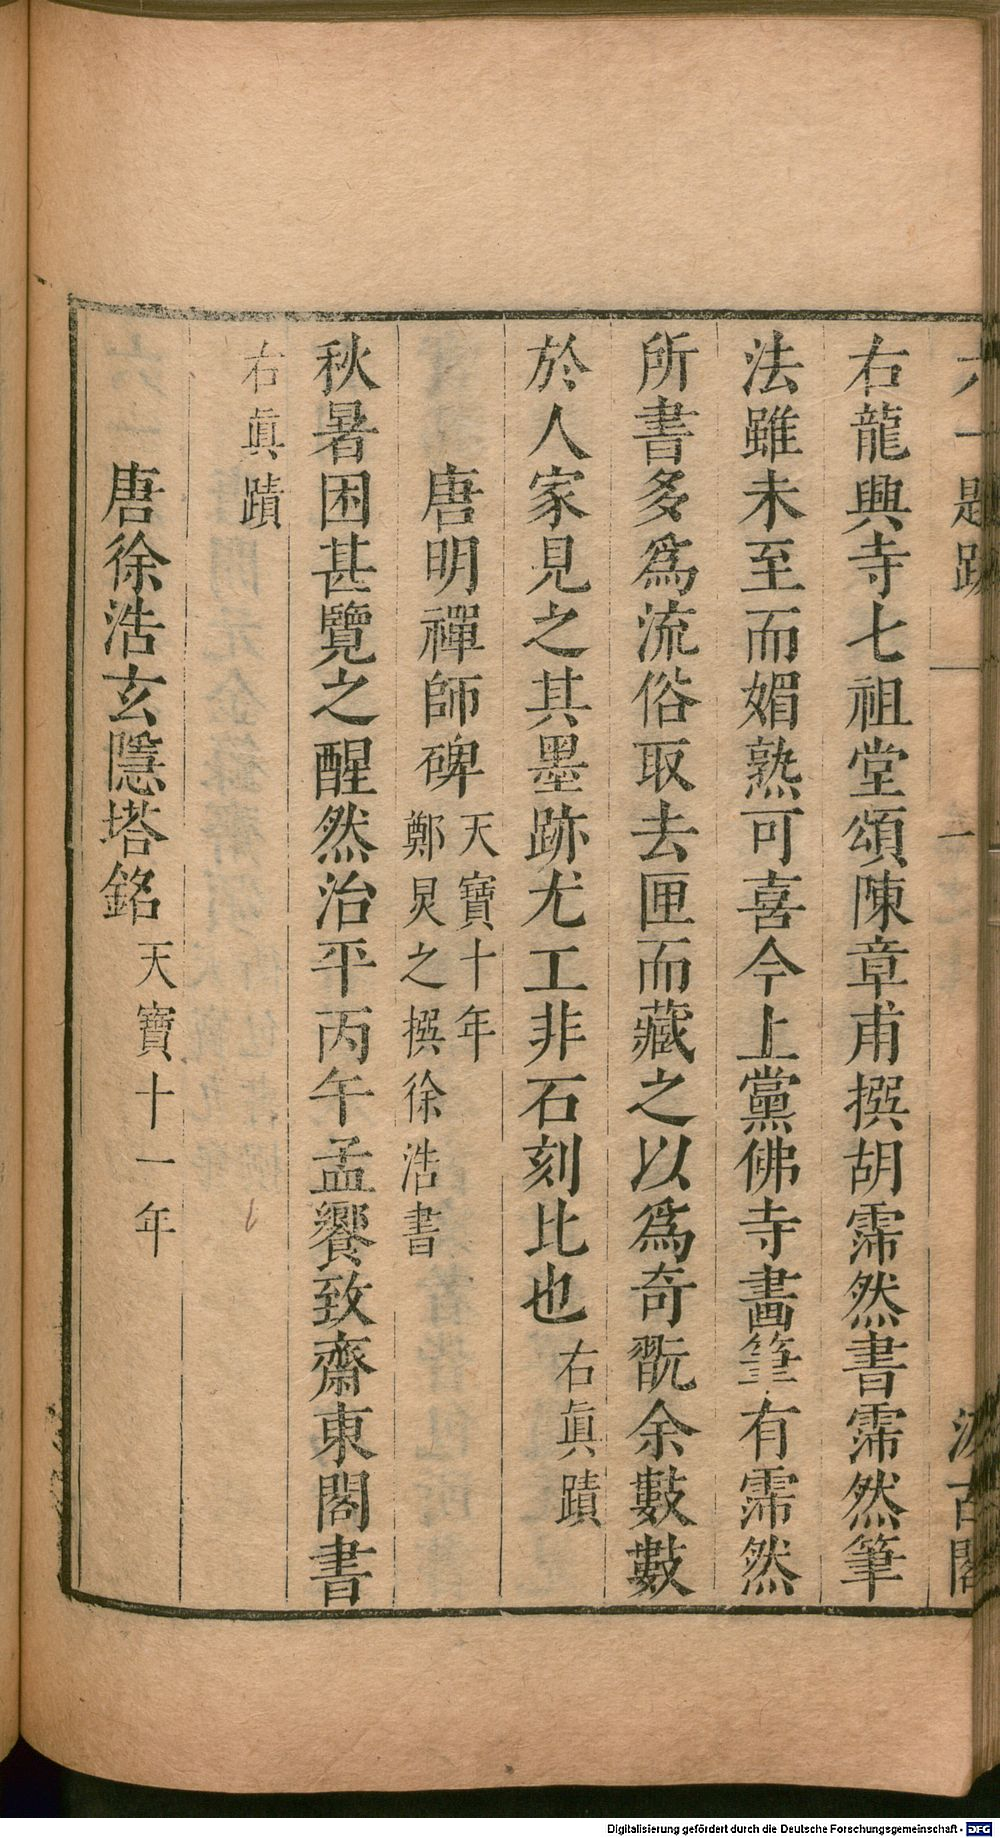 右龍興寺七祖堂頌陳章甫撰胡霈然書霈然筆
法雖未至而媚熟可喜今上黨佛寺畫筆有霈然
所書多爲流俗取去匣而藏之以爲奇翫余數數
於人家見之其墨跡尤工非石刻比也右眞蹟
唐明禪師碑天寶十年
鄭炅之撰徐浩書
秋暑困甚覽之醒然治平丙午孟饗致齋東閣書
右眞蹟
唐徐浩玄隱塔銘天寶十一年
六一題跋
一
汲古閣
Digitalisierung gefördert durch die Deutsche Forschungsgemeinschaft - DFG